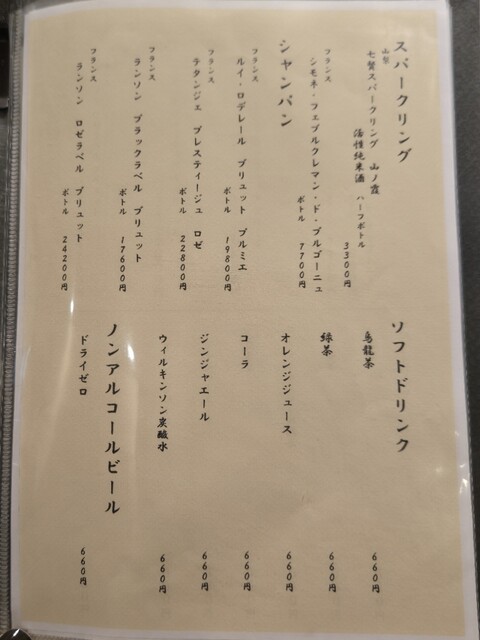 スパークリング
山梨
七賢スパークリング 山ノ霞
活性純米酒 ハーフボトル
3300円
フランス
シモネ・フェブルクレマン・ド・ブルゴーニュ
ボトル 7700円
シャンパン
フランス
ルイ・ロデレール ブリュット プルミエ
ボトル 19800円
フランス
テタンジェ プレスティージュ ロゼ
ボトル 22800円
フランス
ランソン ブラックラベル ブリュット
ボトル 17600円
フランス
ランソン ロゼラベル ブリュット
ボトル 24200円
ソフトドリンク
烏龍茶 660円
緑茶 660円
オレンジジュース 660円
コーラ 660円
ジンジャエール 660円
ウィルキンソン炭酸水 660円
ノンアルコールビール
ドライゼロ 660円